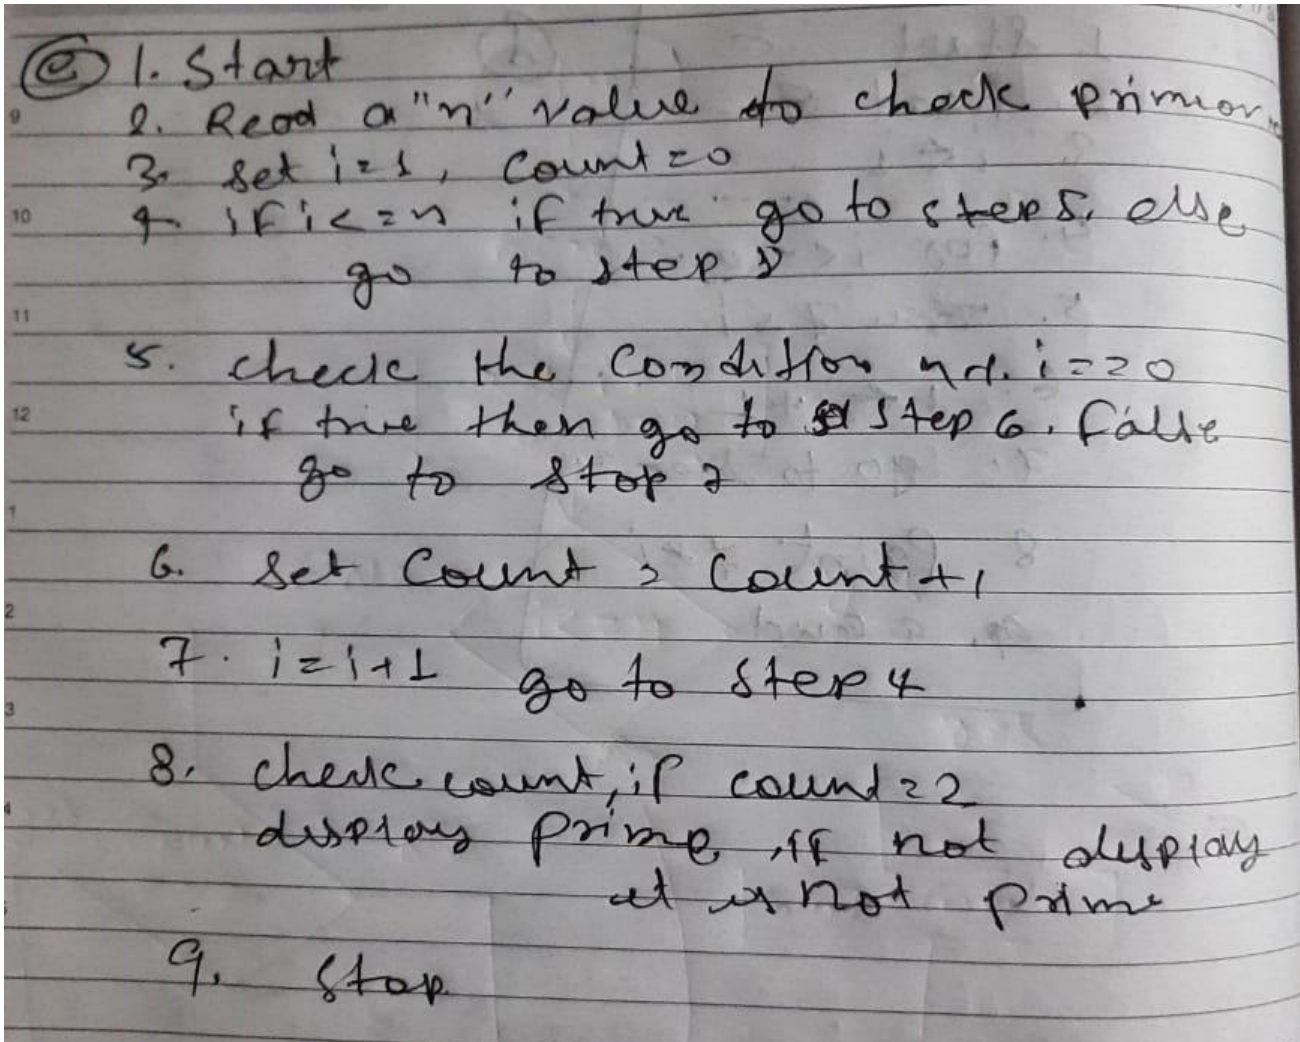 (e) 1. Start
2. Read a "n" value to check prime or
3. set i=1, Count=0
4. if i<=n if true go to step 5, else
go to step 8
5. check the Condition n%i==0
if true then go to step 6. False
go to stop 7
6. Set Count = Count+1
7. i=i+1 go to step 4
8. check count, if count=2
display prime, if not display
it is not prime
9. Stop
9
10
11
12
1
2
3
4
5